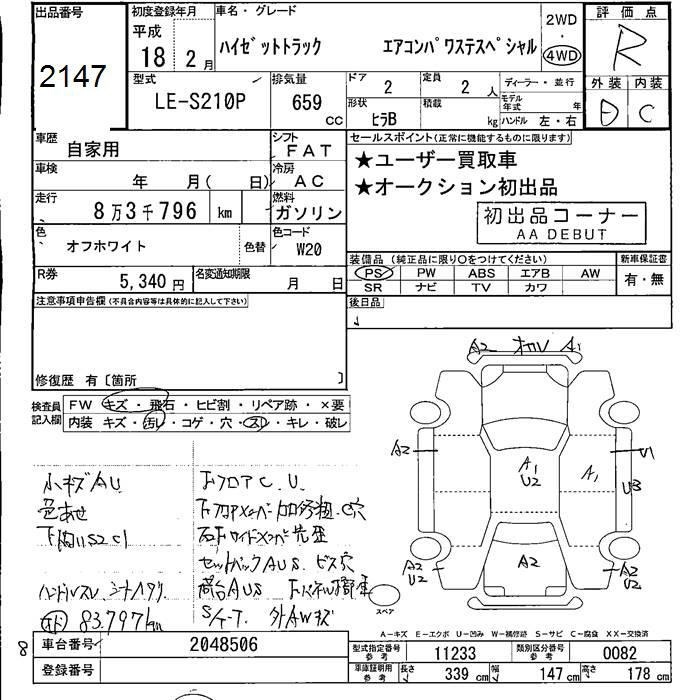 出品番号
2147
初度登録年月
平成
18 2月
車名・グレード
ハイゼットトラック エアコンパワステスペシャル
2WD
・
4WD
評価点
R
外装 内装
D C
型式
LE-S210P
排気量
659
cc
ドア
2
定員
2 人
形状
ヒラB
積載
kg
ディーラー・並行
モデル年式 年
ハンドル 左・右
車歴
自家用
シフト
FAT
車検
年 月( 日)
冷房
AC
走行
8万3千796 km
燃料
ガソリン
色
オフホワイト
色替
色コード
W20
R券
5,340円
名変通知期限
月 日
セールスポイント(正常に機能するものに限ります)
★ユーザー買取車
★オークション初出品
初出品コーナー
AA DEBUT
装備品(純正品に限り○をつけてください)
新車保証書
PS PW ABS エアB AW
SR ナビ TV カワ
有・無
後日品
注意事項申告欄(不具合内容等は具体的に記入して下さい)
修復歴 有〔箇所 〕
検査員記入欄
FW キズ・飛石・ヒビ割・リペア跡・×要
内装 キズ・汚レ・コゲ・穴・スレ・キレ・破レ
小キズAU
色あせ
下廻りS2C1
ハンドルスレ シートハタリ
83.797km
下フロアC.U.
セットバックAUS ビス穴
荷台AUS
外AWキズ
A2 A1
A2
A1
U2
A1
U1
U3
A2
A2
U2
A2
U2
スペア
A-キズ E-エクボ U-凹み W-補修跡 S-サビ C-腐食 XX-交換済
車台番号
2048506
登録番号
型式指定番号
参考
11233
類別区分番号
参考
0082
車庫証明用
参考
長さ 339 cm 幅 147 cm 高さ 178 cm
8